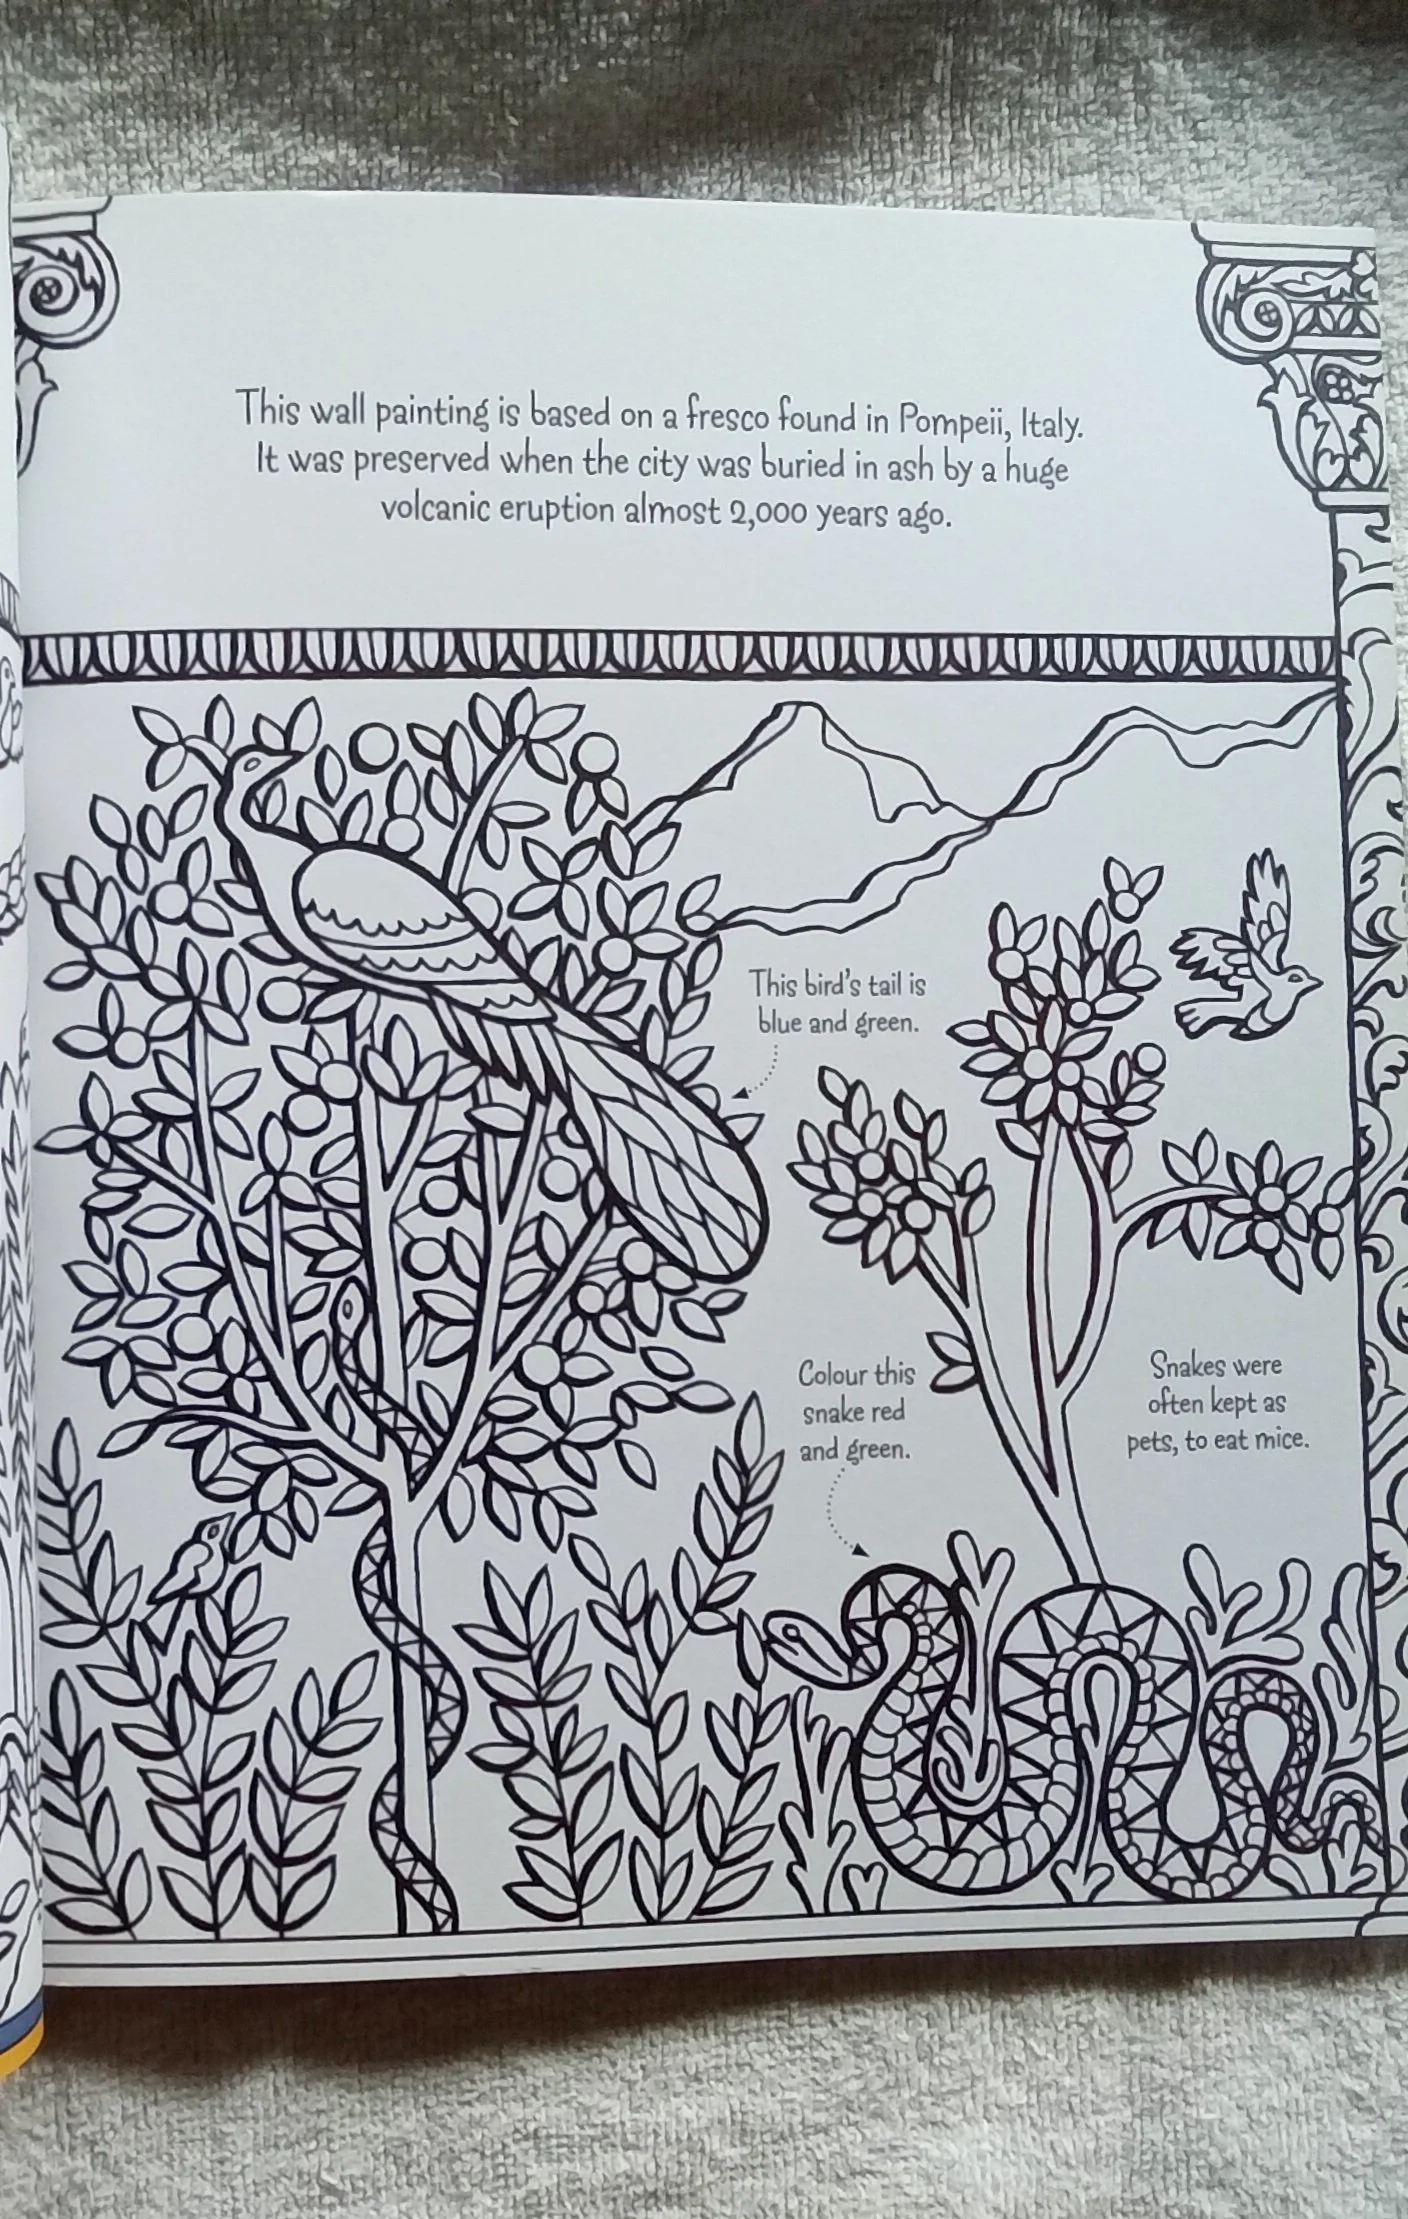 This wall painting is based on a fresco found in Pompeii, Italy.
It was preserved when the city was buried in ash by a huge
volcanic eruption almost 2,000 years ago.
This bird's tail is
blue and green.
Colour this
snake red
and green.
Snakes were
often kept as
pets, to eat mice.